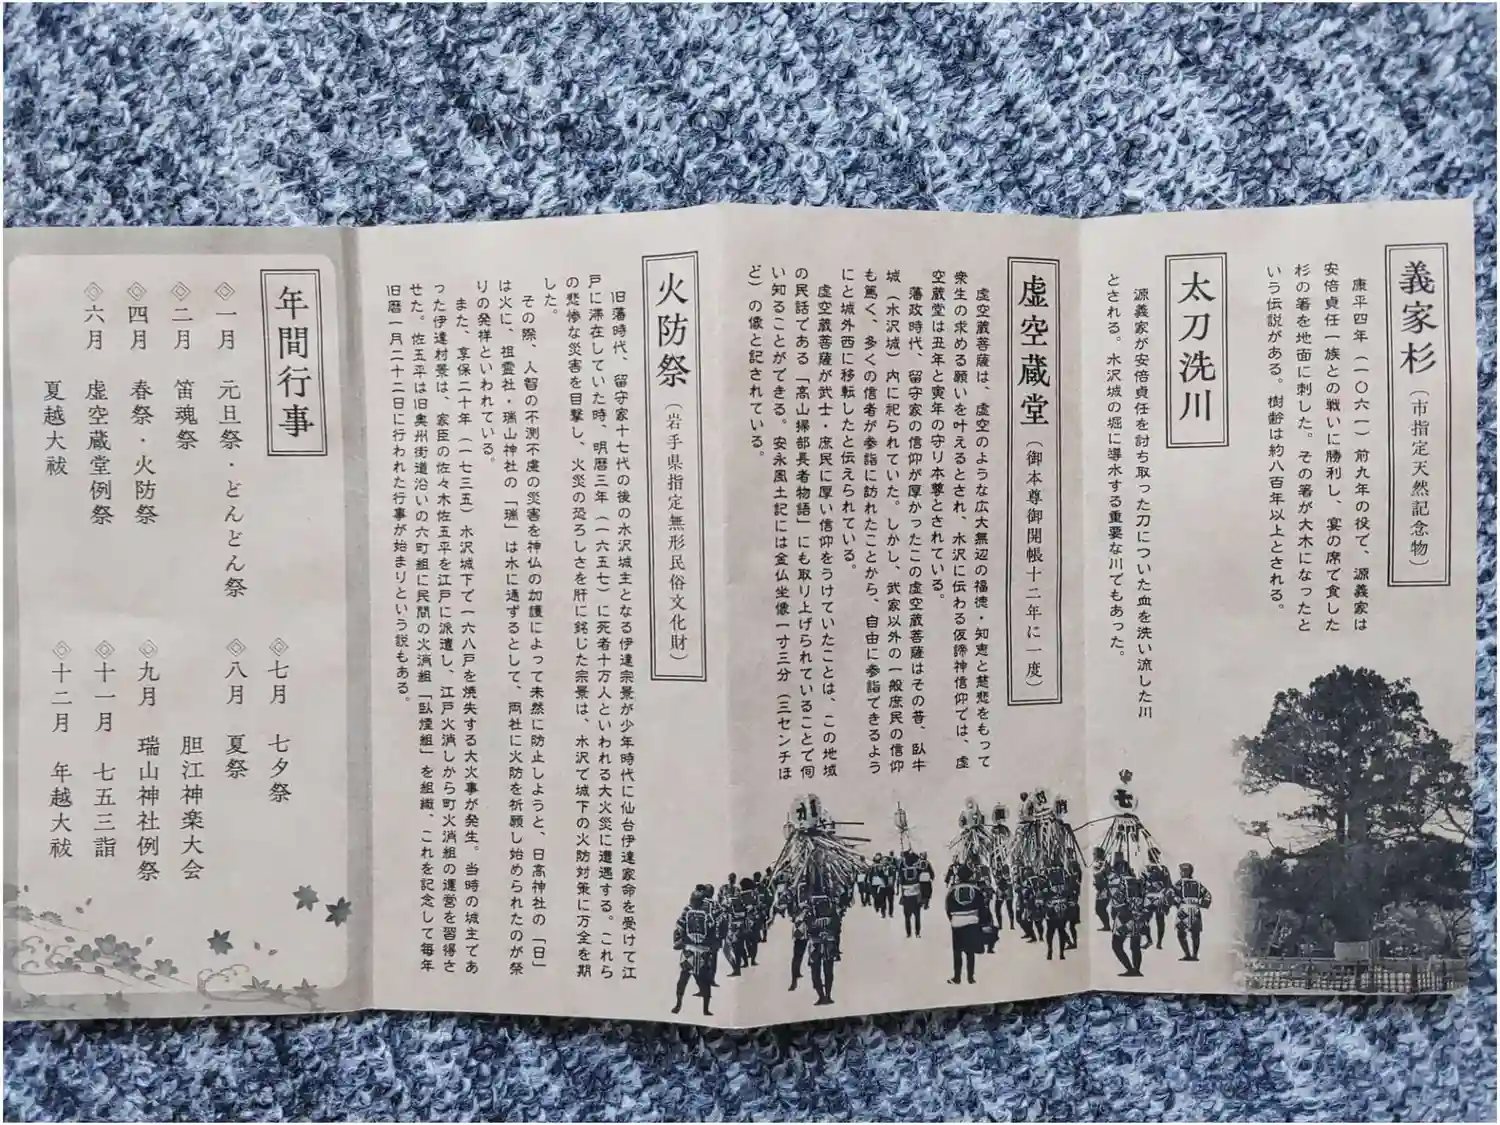 義家杉（市指定天然記念物）
康平四年（一〇六一）前九年の役で、源義家は
安倍貞任一族との戦いに勝利し、宴の席で食した
杉の箸を地面に刺した。その箸が大木になったと
いう伝説がある。樹齢は約八百年以上とされる。
太刀洗川
源義家が安倍貞任を討ち取った刀についた血を洗い流した川
とされる。水沢城の堀に導水する重要な川でもあった。
虚空蔵堂（御本尊御開帳十二年に一度）
虚空蔵菩薩は、虚空のような広大無辺の福徳・知恵と慈悲をもって
衆生の求める願いを叶えるとされ、水沢に伝わる仮諦神信仰では、虚
空蔵堂は丑年と寅年の守り本尊とされている。
藩政時代、留守家の信仰が厚かったこの虚空蔵菩薩はその昔、臥牛
城（水沢城）内に祀られていた。しかし、武家以外の一般庶民の信仰
も篤く、多くの信者が参詣に訪れたことから、自由に参詣できるよう
にと城外西に移転したと伝えられている。
虚空蔵菩薩が武士・庶民に厚い信仰をうけていたことは、この地域
の民話である「高山掃部長者物語」にも取り上げられていることで伺
い知ることができる。安永風土記には金仏坐像一寸三分（三センチほ
ど）の像と記されている。
火防祭（岩手県指定無形民俗文化財）
旧藩時代、留守家十七代の後の水沢城主となる伊達宗景が少年時代に仙台伊達家命を受けて江
戸に滞在していた時、明暦三年（一六五七）に死者十万人といわれる大火災に遭遇する。これら
の悲惨な災害を目撃し、火災の恐ろしさを肝に銘じた宗景は、水沢で城下の火防対策に万全を期
した。
その際、人智の不測不慮の災害を神仏の加護によって未然に防止しようと、日高神社の「日」
は火に、祖霊社・瑞山神社の「瑞」は水に通ずるとして、両社に火防を祈願し始められたのが祭
りの発祥といわれている。
また、享保二十年（一七三五）水沢城下で一六八戸を焼失する大火事が発生。当時の城主であ
った伊達村景は、家臣の佐々木佐五平を江戸に派遣し、江戸火消しから町火消組の運営を習得さ
せた。佐五平は旧奥州街道沿いの六町組に民間の火消組「臥煙組」を組織、これを記念して毎年
旧暦一月二十二日に行われた行事が始まりという説もある。
年間行事
◈一月　元旦祭・どんどん祭
◈二月　笛魂祭
◈四月　春祭・火防祭
◈六月　虚空蔵堂例祭
夏越大祓
◈七月　七夕祭
◈八月　夏祭
胆江神楽大会
◈九月　瑞山神社例祭
◈十一月　七五三詣
◈十二月　年越大祓
七